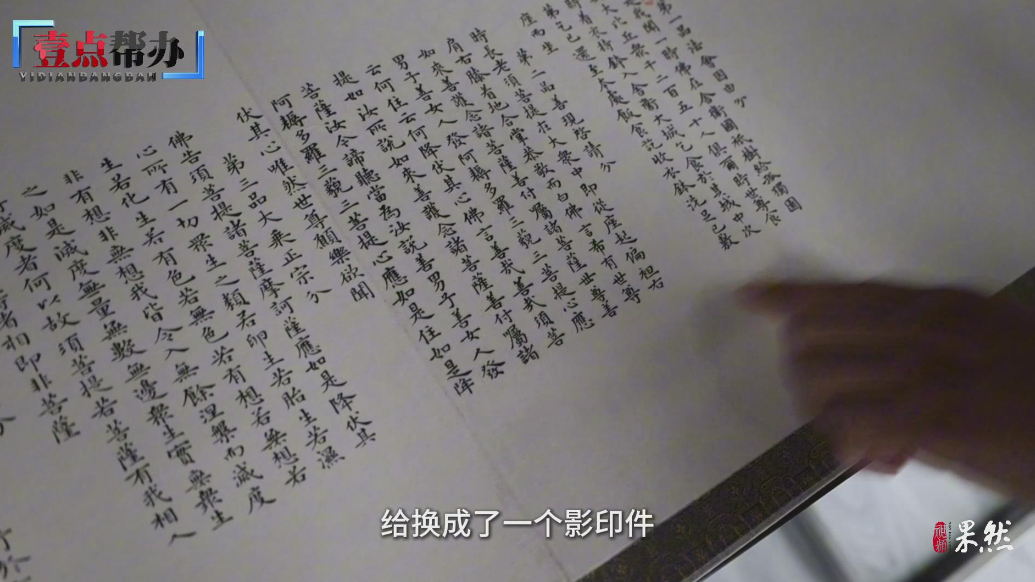 壹点帮办
YIDIANDANGBAN
第一品法會因由分
我聞一時佛在舍衛國祇樹給孤獨園
大比丘衆千二百五十人俱爾時世尊食
着衣持鉢入舍衛大城乞食於其城中次
第乞已還至本處飯食訖收衣鉢洗足已敷
座而坐
第二品善現啓請分
時長老須菩提在大衆中即從座起偏袒右
肩右膝着地合掌恭敬而白佛言希有世尊
如來善護念諸菩薩善付囑諸菩薩世尊善
男子善女人發阿耨多羅三藐三菩提心應
云何住云何降伏其心佛言善哉善哉須菩
提如汝所說如來善護念諸菩薩善付囑諸
菩薩汝今諦聽當為汝說善男子善女人發
阿耨多羅三藐三菩提心應如是住如是降
伏其心唯然世尊願樂欲聞
第三品大乘正宗分
佛告須菩提諸菩薩摩訶薩應如是降伏其
心所有一切衆生之類若卵生若胎生若濕
生若化生若有色若無色若有想若無想若
非有想非無想我皆令入無餘涅槃而滅度
之如是滅度無量無數無邊衆生實無衆生
滅度者何以故須菩提若菩薩有我相人
者相即非菩薩
给换成了一个影印件
果然